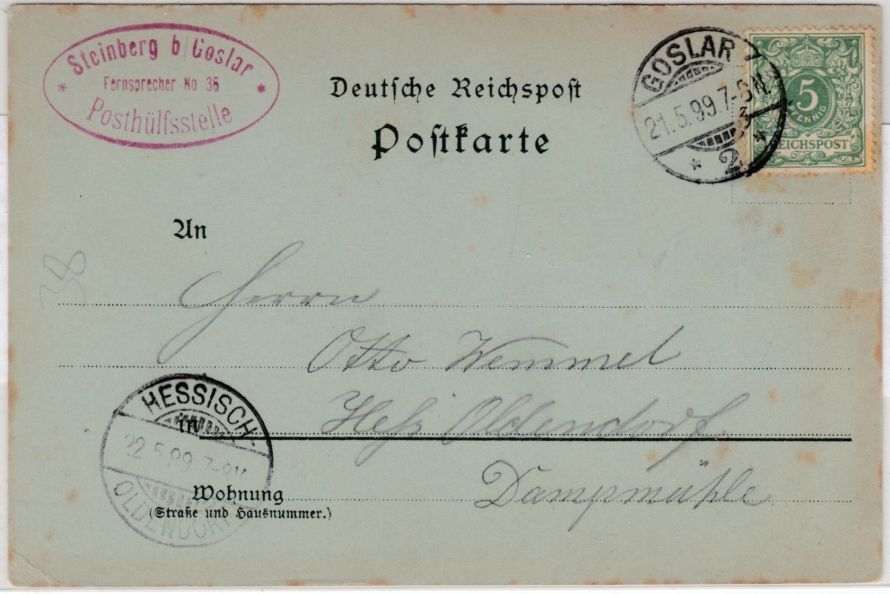 Steinberg b/Goslar
* Fernsprecher No 36 *
Posthülfsstelle
Deutsche Reichspost
Postkarte
GOSLAR 1
21.5.99.7-8N.
* 2 *
5
PFENNIG
REICHSPOST
An
Herrn
Otto Wemmel
Hess Oldendorf.
in
Dampmühle
Wohnung
(Straße und Hausnummer.)
HESSISCH-
22.5.99.7-8V
OLDENDORF